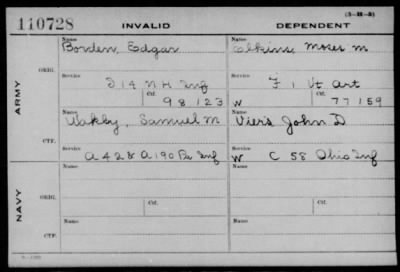 110728 INVALID DEPENDENT (3-H-3)
Name Name
Borden, Edgar Elkins, Moses M
ORIG. Service Service
ARMY D 14 N H Inf F 1 Vt Art
Ctf. Ctf.
98123 W 77159
Name Name
Wakby, Samuel M Viers John D
CTF. Service Service
A 42 & A 190 Pa Inf W C 58 Ohio Inf
Name Name
NAVY ORIG. Service Service
Ctf. Ctf.
Name Name
CTF.